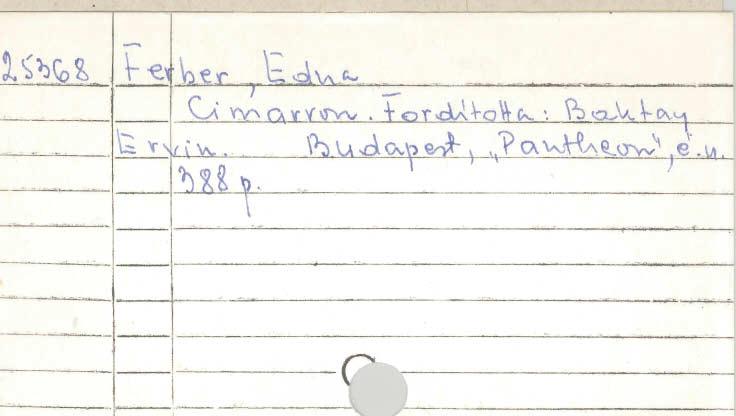 25368 Ferber, Edna
Cimarron. Fordította: Baktay
Ervin. Budapest, „Pantheon", é.n.
388 p.